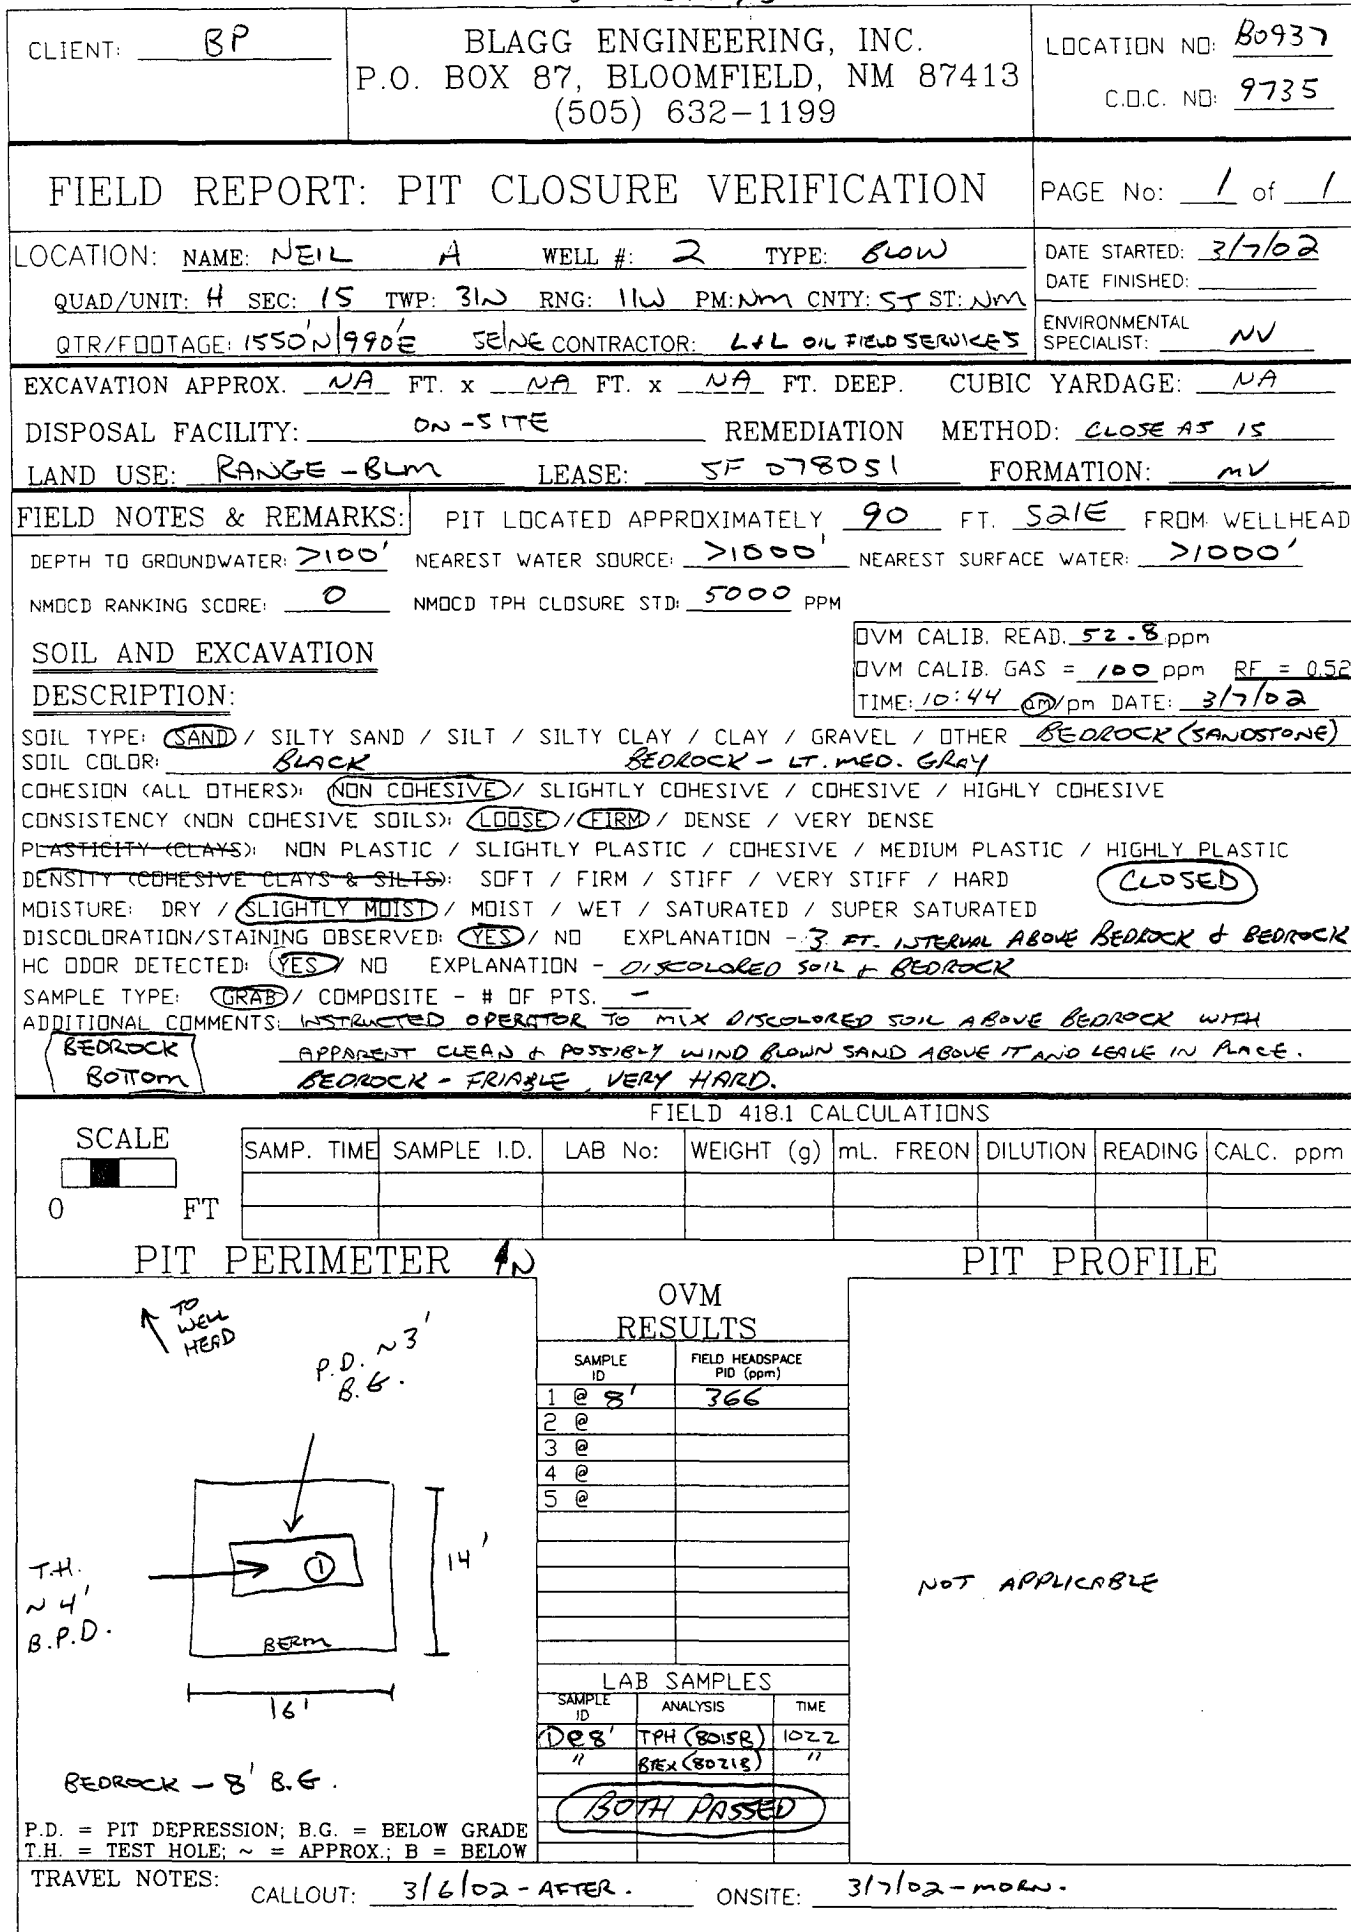 CLIENT: BP
BLAGG ENGINEERING, INC.
P.O. BOX 87, BLOOMFIELD, NM 87413
(505) 632-1199
LOCATION NO: B0937
C.O.C. NO: 9735
FIELD REPORT: PIT CLOSURE VERIFICATION
PAGE No: 1 of 1
LOCATION: NAME: NEIL A WELL #: 2 TYPE: BLOW
QUAD/UNIT: H SEC: 15 TWP: 31N RNG: 11W PM: NM CNTY: SJ ST: NM
QTR/FOOTAGE: 1550'N/990'E SE/NE CONTRACTOR: L+L OIL FIELD SERVICES
DATE STARTED: 3/7/02
DATE FINISHED:
ENVIRONMENTAL
SPECIALIST: NV
EXCAVATION APPROX. NA FT. x NA FT. x NA FT. DEEP. CUBIC YARDAGE: NA
DISPOSAL FACILITY: ON-SITE REMEDIATION METHOD: CLOSE AS IS
LAND USE: RANGE - BLM LEASE: SF 078051 FORMATION: MV
FIELD NOTES & REMARKS: PIT LOCATED APPROXIMATELY 90 FT. S21E FROM WELLHEAD
DEPTH TO GROUNDWATER: >100' NEAREST WATER SOURCE: >1000' NEAREST SURFACE WATER: >1000'
NMOCD RANKING SCORE: 0 NMOCD TPH CLOSURE STD: 5000 PPM
SOIL AND EXCAVATION
DESCRIPTION:
OVM CALIB. READ. 52.8 ppm
OVM CALIB. GAS = 100 ppm RF = 0.52
TIME: 10:44 am/pm DATE: 3/7/02
SOIL TYPE: SAND / SILTY SAND / SILT / SILTY CLAY / CLAY / GRAVEL / OTHER BEDROCK (SANDSTONE)
SOIL COLOR: BLACK BEDROCK - LT. MED. GRAY
COHESION (ALL OTHERS): NON COHESIVE / SLIGHTLY COHESIVE / COHESIVE / HIGHLY COHESIVE
CONSISTENCY (NON COHESIVE SOILS): LOOSE / FIRM / DENSE / VERY DENSE
PLASTICITY (CLAYS): NON PLASTIC / SLIGHTLY PLASTIC / COHESIVE / MEDIUM PLASTIC / HIGHLY PLASTIC
DENSITY (COHESIVE CLAYS & SILTS): SOFT / FIRM / STIFF / VERY STIFF / HARD CLOSED
MOISTURE: DRY / SLIGHTLY MOIST / MOIST / WET / SATURATED / SUPER SATURATED
DISCOLORATION/STAINING OBSERVED: YES / NO EXPLANATION - 3 FT. INTERVAL ABOVE BEDROCK & BEDROCK
HC ODOR DETECTED: YES / NO EXPLANATION - DISCOLORED SOIL + BEDROCK
SAMPLE TYPE: GRAB / COMPOSITE - # OF PTS. -
ADDITIONAL COMMENTS: INSTRUCTED OPERATOR TO MIX DISCOLORED SOIL ABOVE BEDROCK WITH
APPARENT CLEAN & POSSIBLY WIND BLOWN SAND ABOVE IT AND LEAVE IN PLACE.
BEDROCK - FRIABLE, VERY HARD.
BEDROCK
BOTTOM
FIELD 418.1 CALCULATIONS
SCALE
0 FT
SAMP. TIME SAMPLE I.D. LAB No: WEIGHT (g) mL. FREON DILUTION READING CALC. ppm
PIT PERIMETER N
PIT PROFILE
TO
WELL
HEAD
P.D. ~3'
B.G.
T.H.
~4'
B.P.D.
1
BERM
14'
16'
BEDROCK - 8' B.G.
P.D. = PIT DEPRESSION; B.G. = BELOW GRADE
T.H. = TEST HOLE; ~ = APPROX.; B = BELOW
OVM
RESULTS
SAMPLE ID FIELD HEADSPACE PID (ppm)
1 @ 8' 366
2 @
3 @
4 @
5 @
LAB SAMPLES
SAMPLE ID ANALYSIS TIME
1@8' TPH (8015B) 1022
" BTEX (8021B) "
BOTH PASSED
NOT APPLICABLE
TRAVEL NOTES: CALLOUT: 3/6/02 - AFTER. ONSITE: 3/7/02 - MORN.